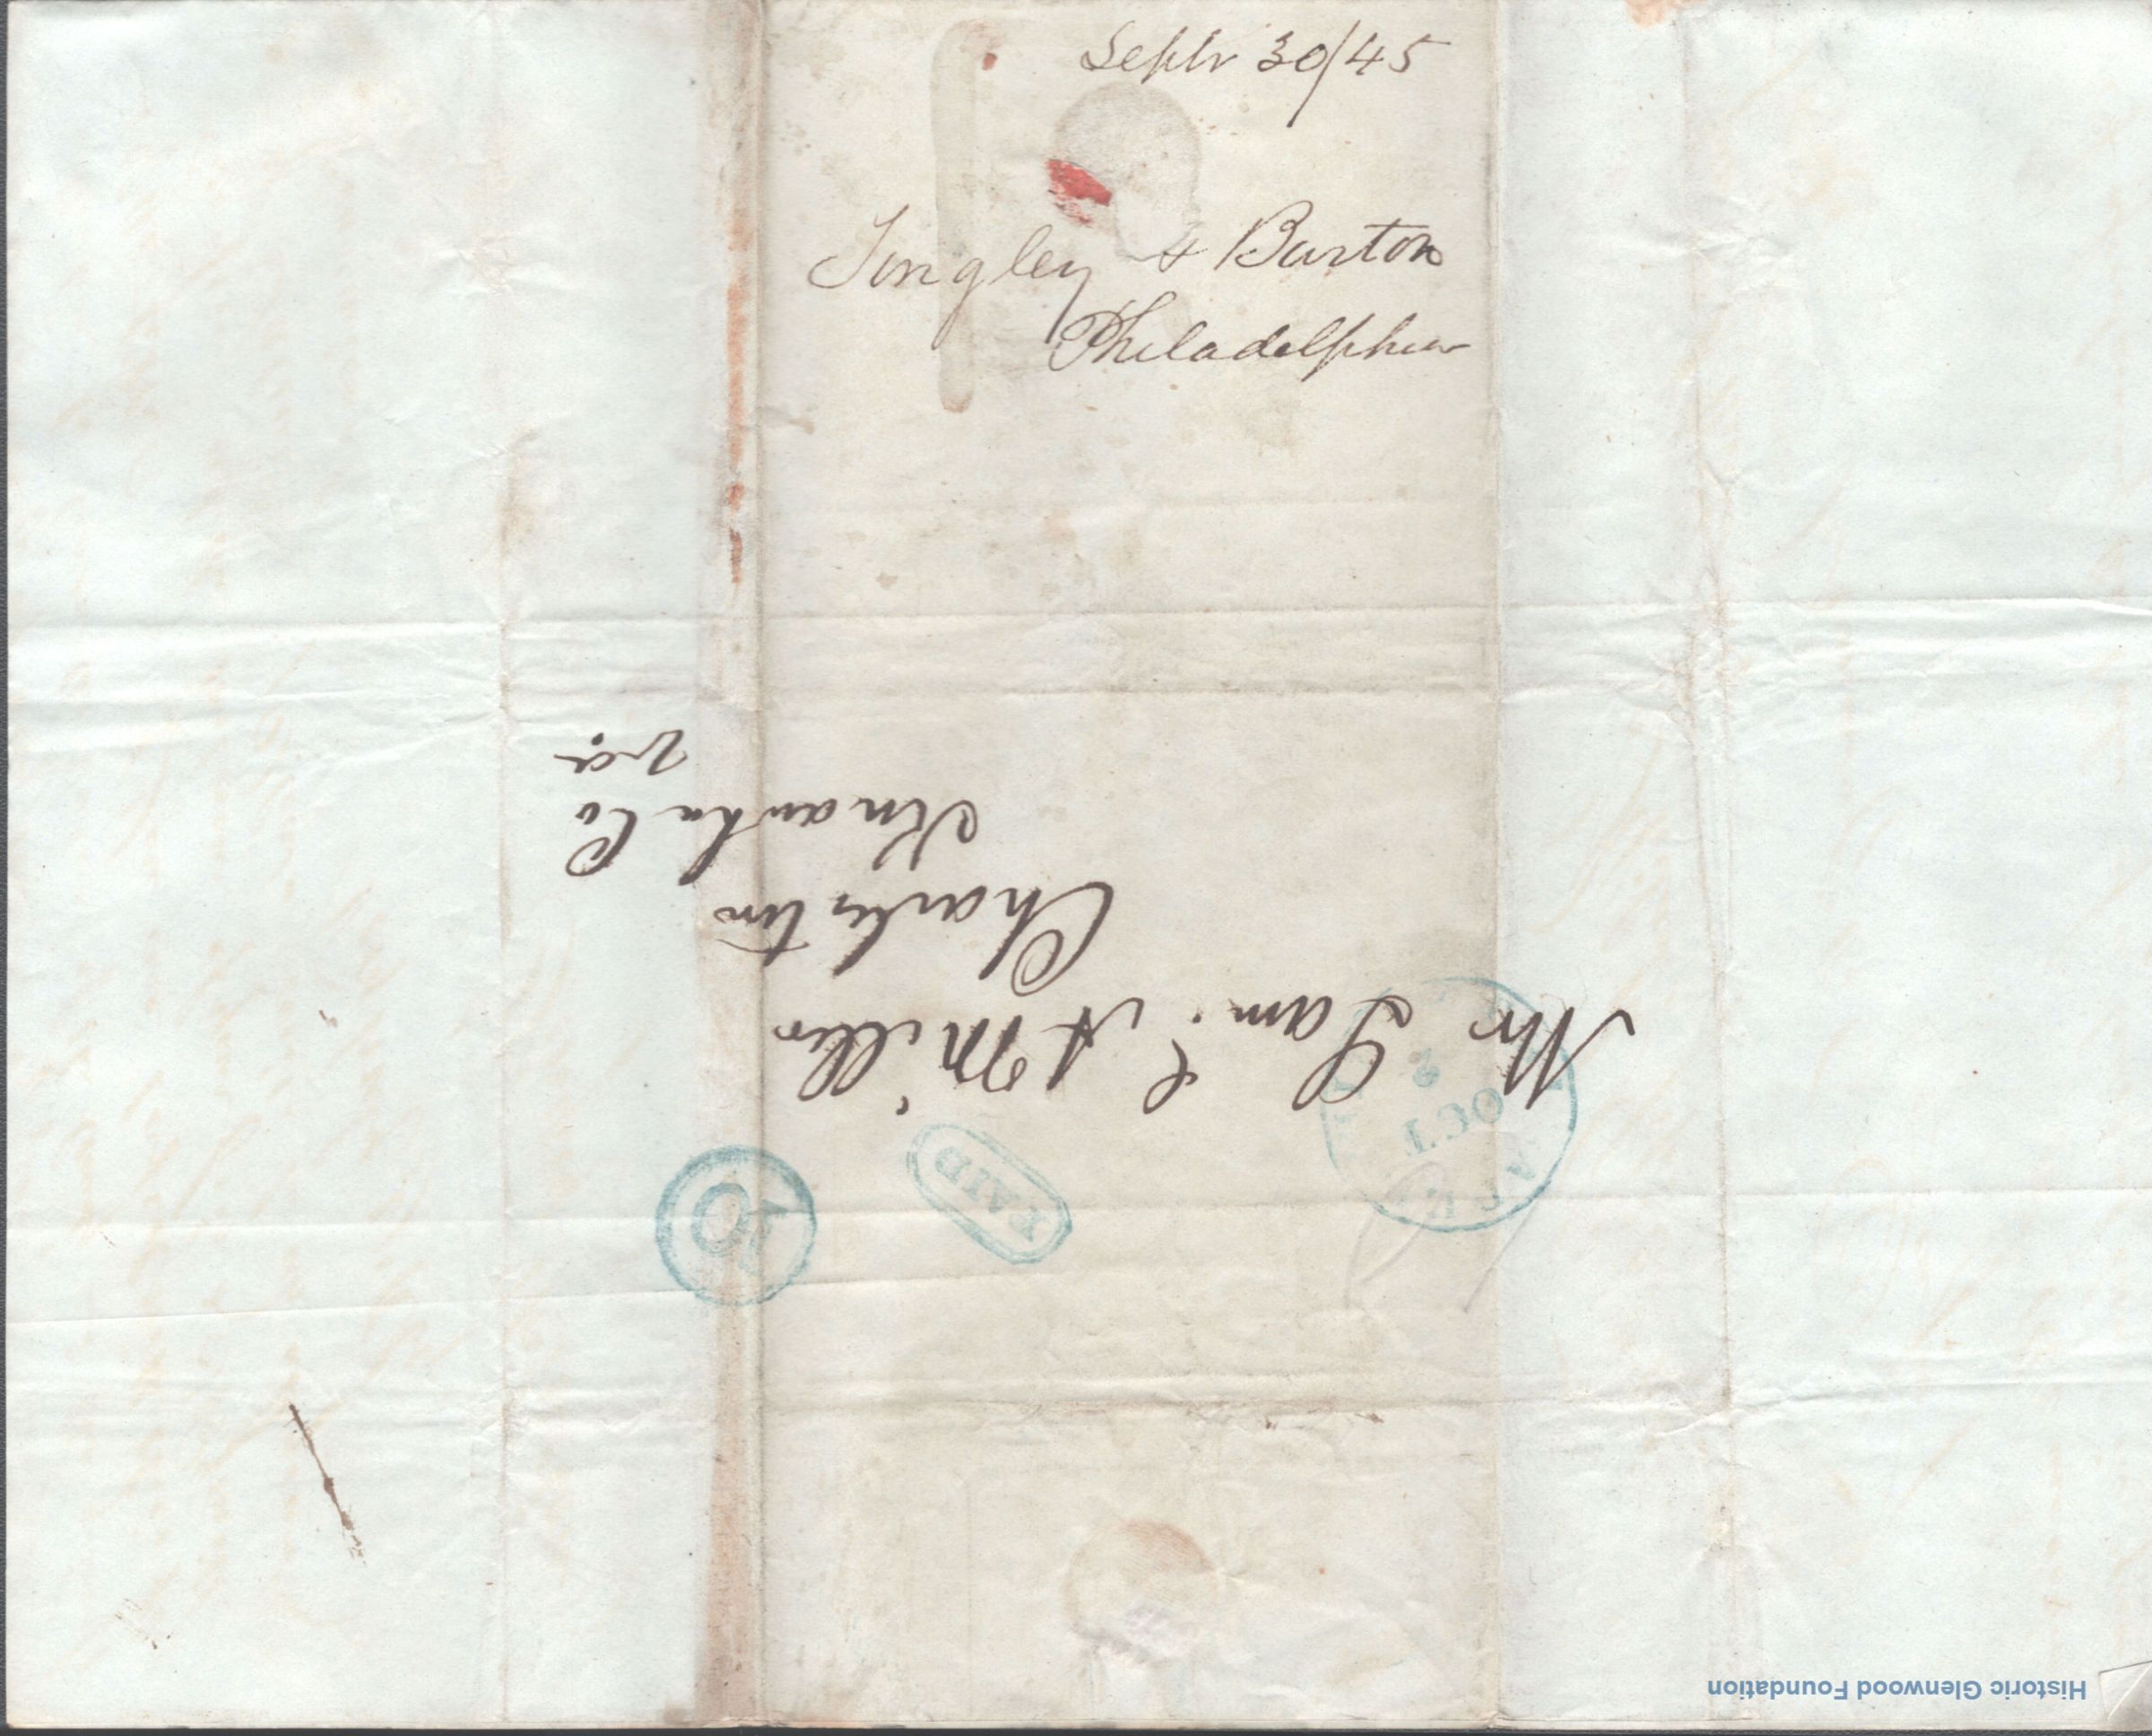 Septr 30/45
Tingley & Burton
Philadelphia
Mr Saml A Miller
Charleston
Knawha Co
Va
PAID
10
OCT
2
Historic Glenwood Foundation